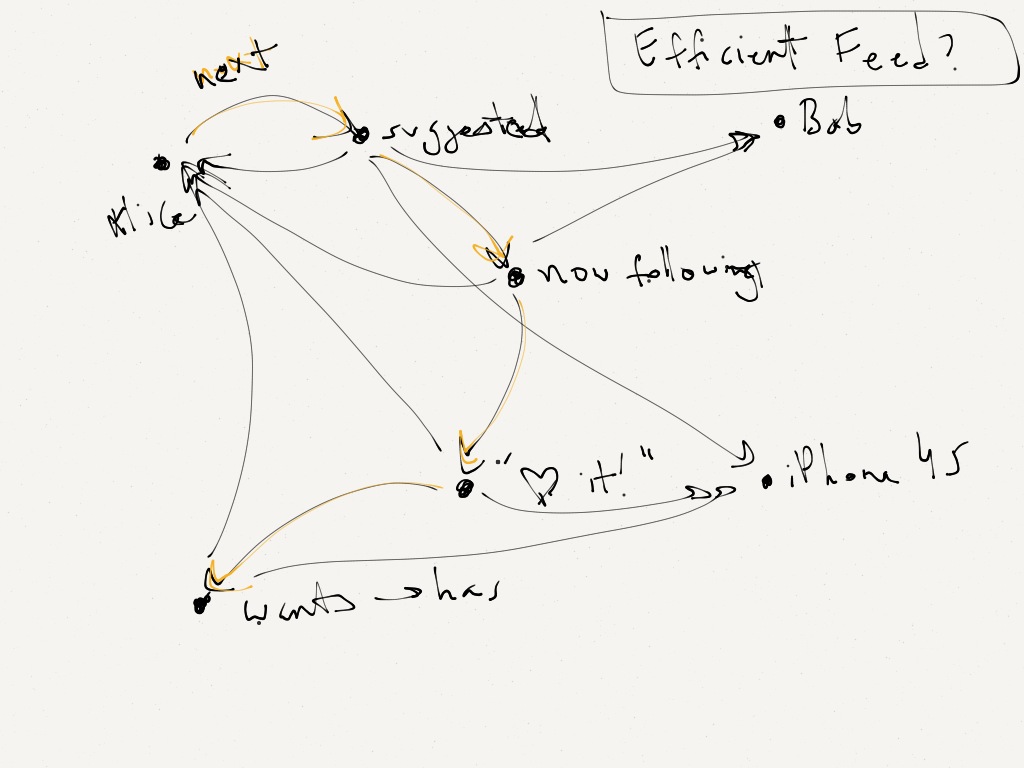 Efficient Feed?
next
suggested
Bob
Alice
now following
"♡ it!"
iPhone 4S
wants → has